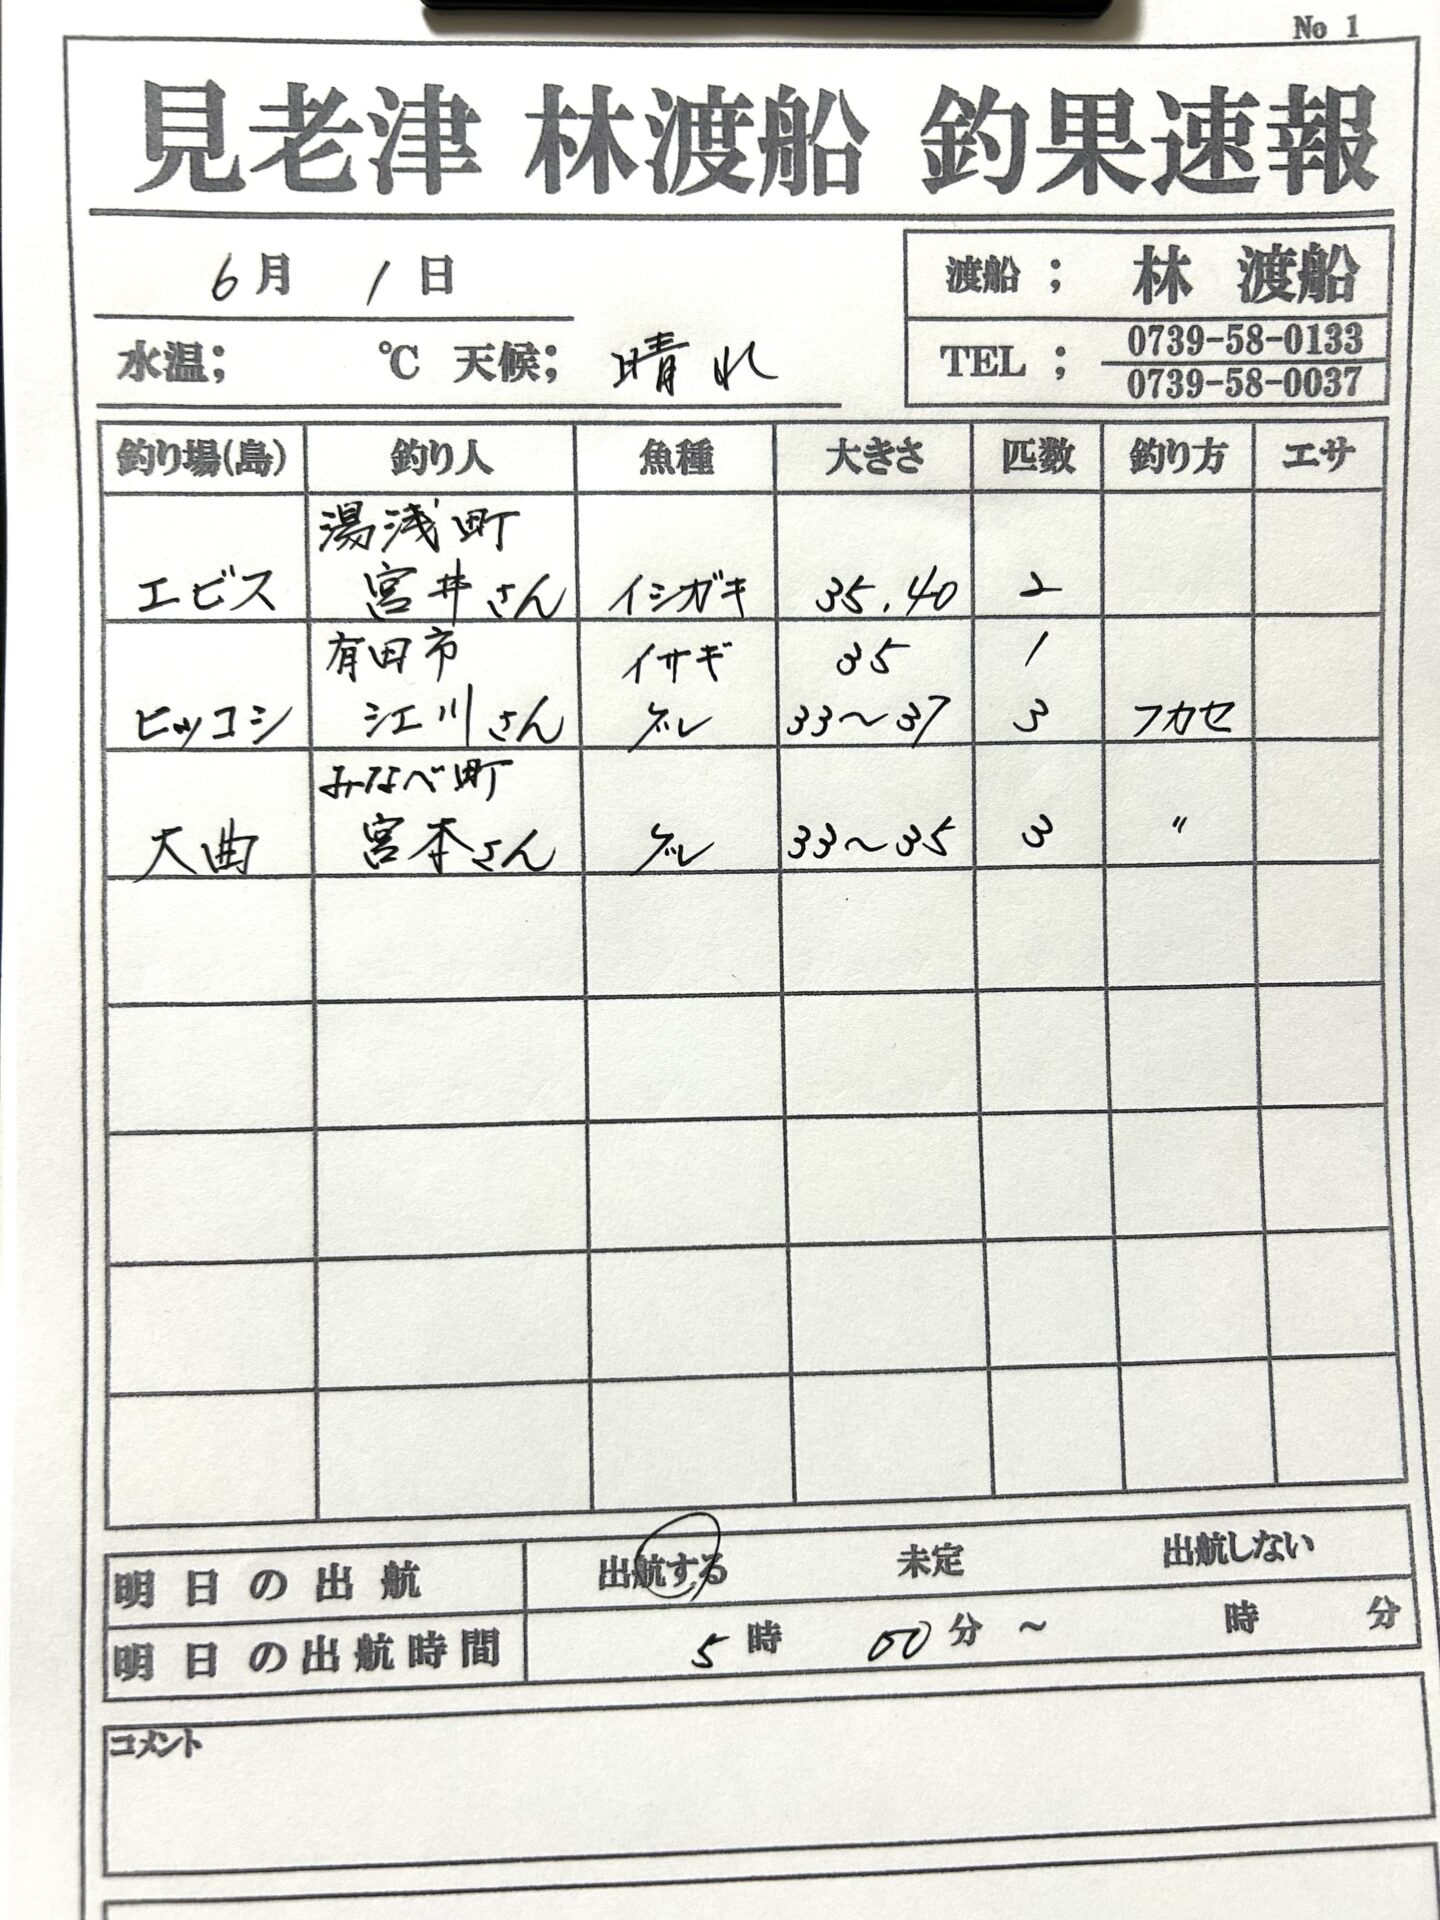 No 1
見老津 林渡船 釣果速報
6月 1日
渡船 ; 林 渡船
水温; ℃ 天候; 晴れ
TEL ; 0739-58-0133
0739-58-0037
釣り場(島) 釣り人 魚種 大きさ 匹数 釣り方 エサ
湯浅町
エビス 宮井さん イシガキ 35.40 2
有田市 イサギ 35 1
ヒッコシ 江川さん グレ 33〜37 3 フカセ
みなべ町
大曲 宮本さん グレ 33〜35 3 〃
明日の出航 出航する 未定 出航しない
明日の出航時間 5時 00分 ~ 時 分
コメント